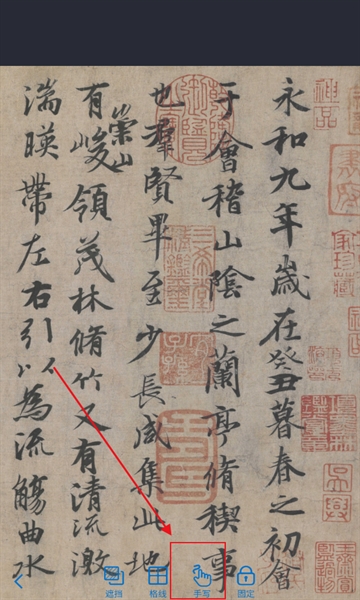 永和九年歲在癸丑暮春之初會
于會稽山陰之蘭亭脩稧事
也羣賢畢至少長咸集此地
有崇山峻領茂林脩竹又有清流激
湍暎帶左右引以為流觴曲水
神品
遮挡
格线
手写
固定